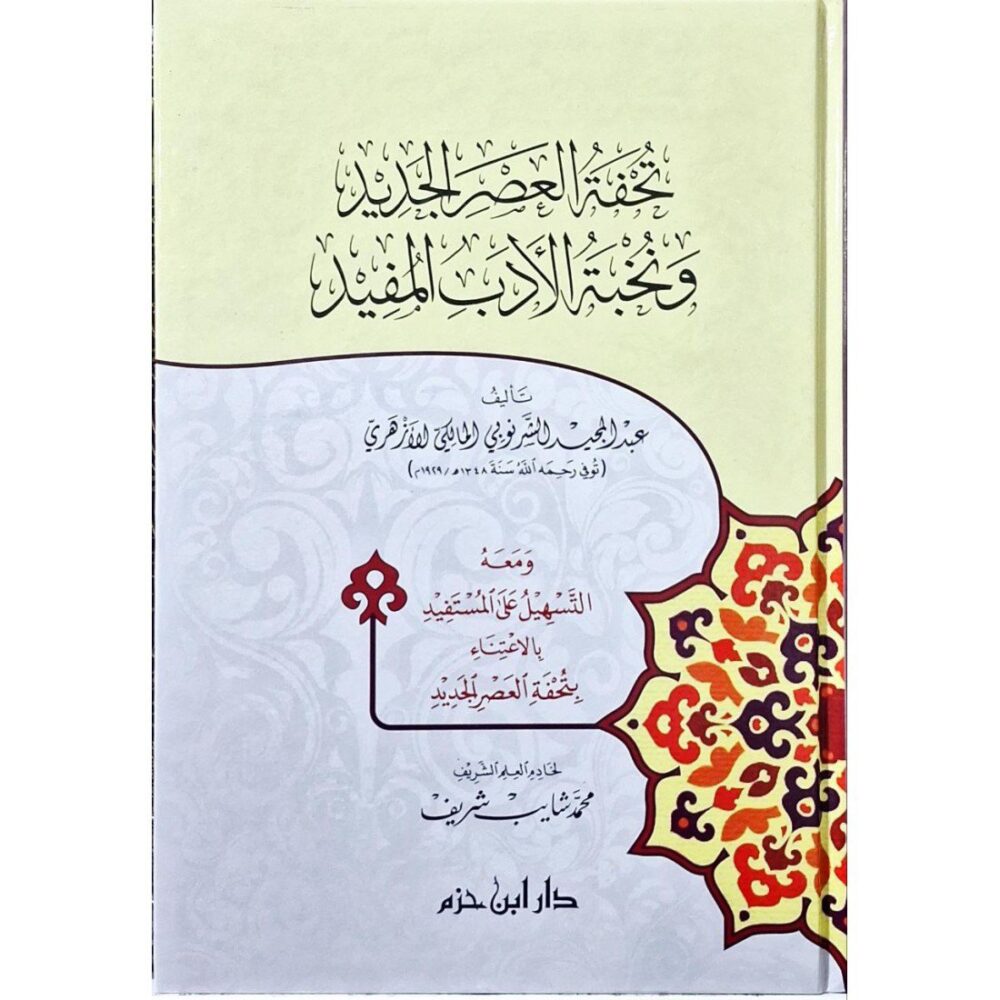 تُحْفَةُ العَصْرِ الجَدِيْدِ
وَنُخْبَةُ الأَدَبِ المُفِيْدِ
تَأليفُ
عبد المجيد الشَّرنوبي المالكيّ الأَزْهَريّ
(تُوفي رَحِمَه اللهُ سَنَةَ ١٣٤٨هـ/١٩٢٩م)
وَمَعَهُ
التَّسْهِيْلُ عَلَى المُسْتَفِيْدِ
بِالاعْتِنَاءِ
بِتُحْفَةِ العَصْرِ الجَدِيْدِ
لخَادِمِ العِلمِ الشَّرِيْفِ
محمَّد شايب شريف
دار ابن حزم